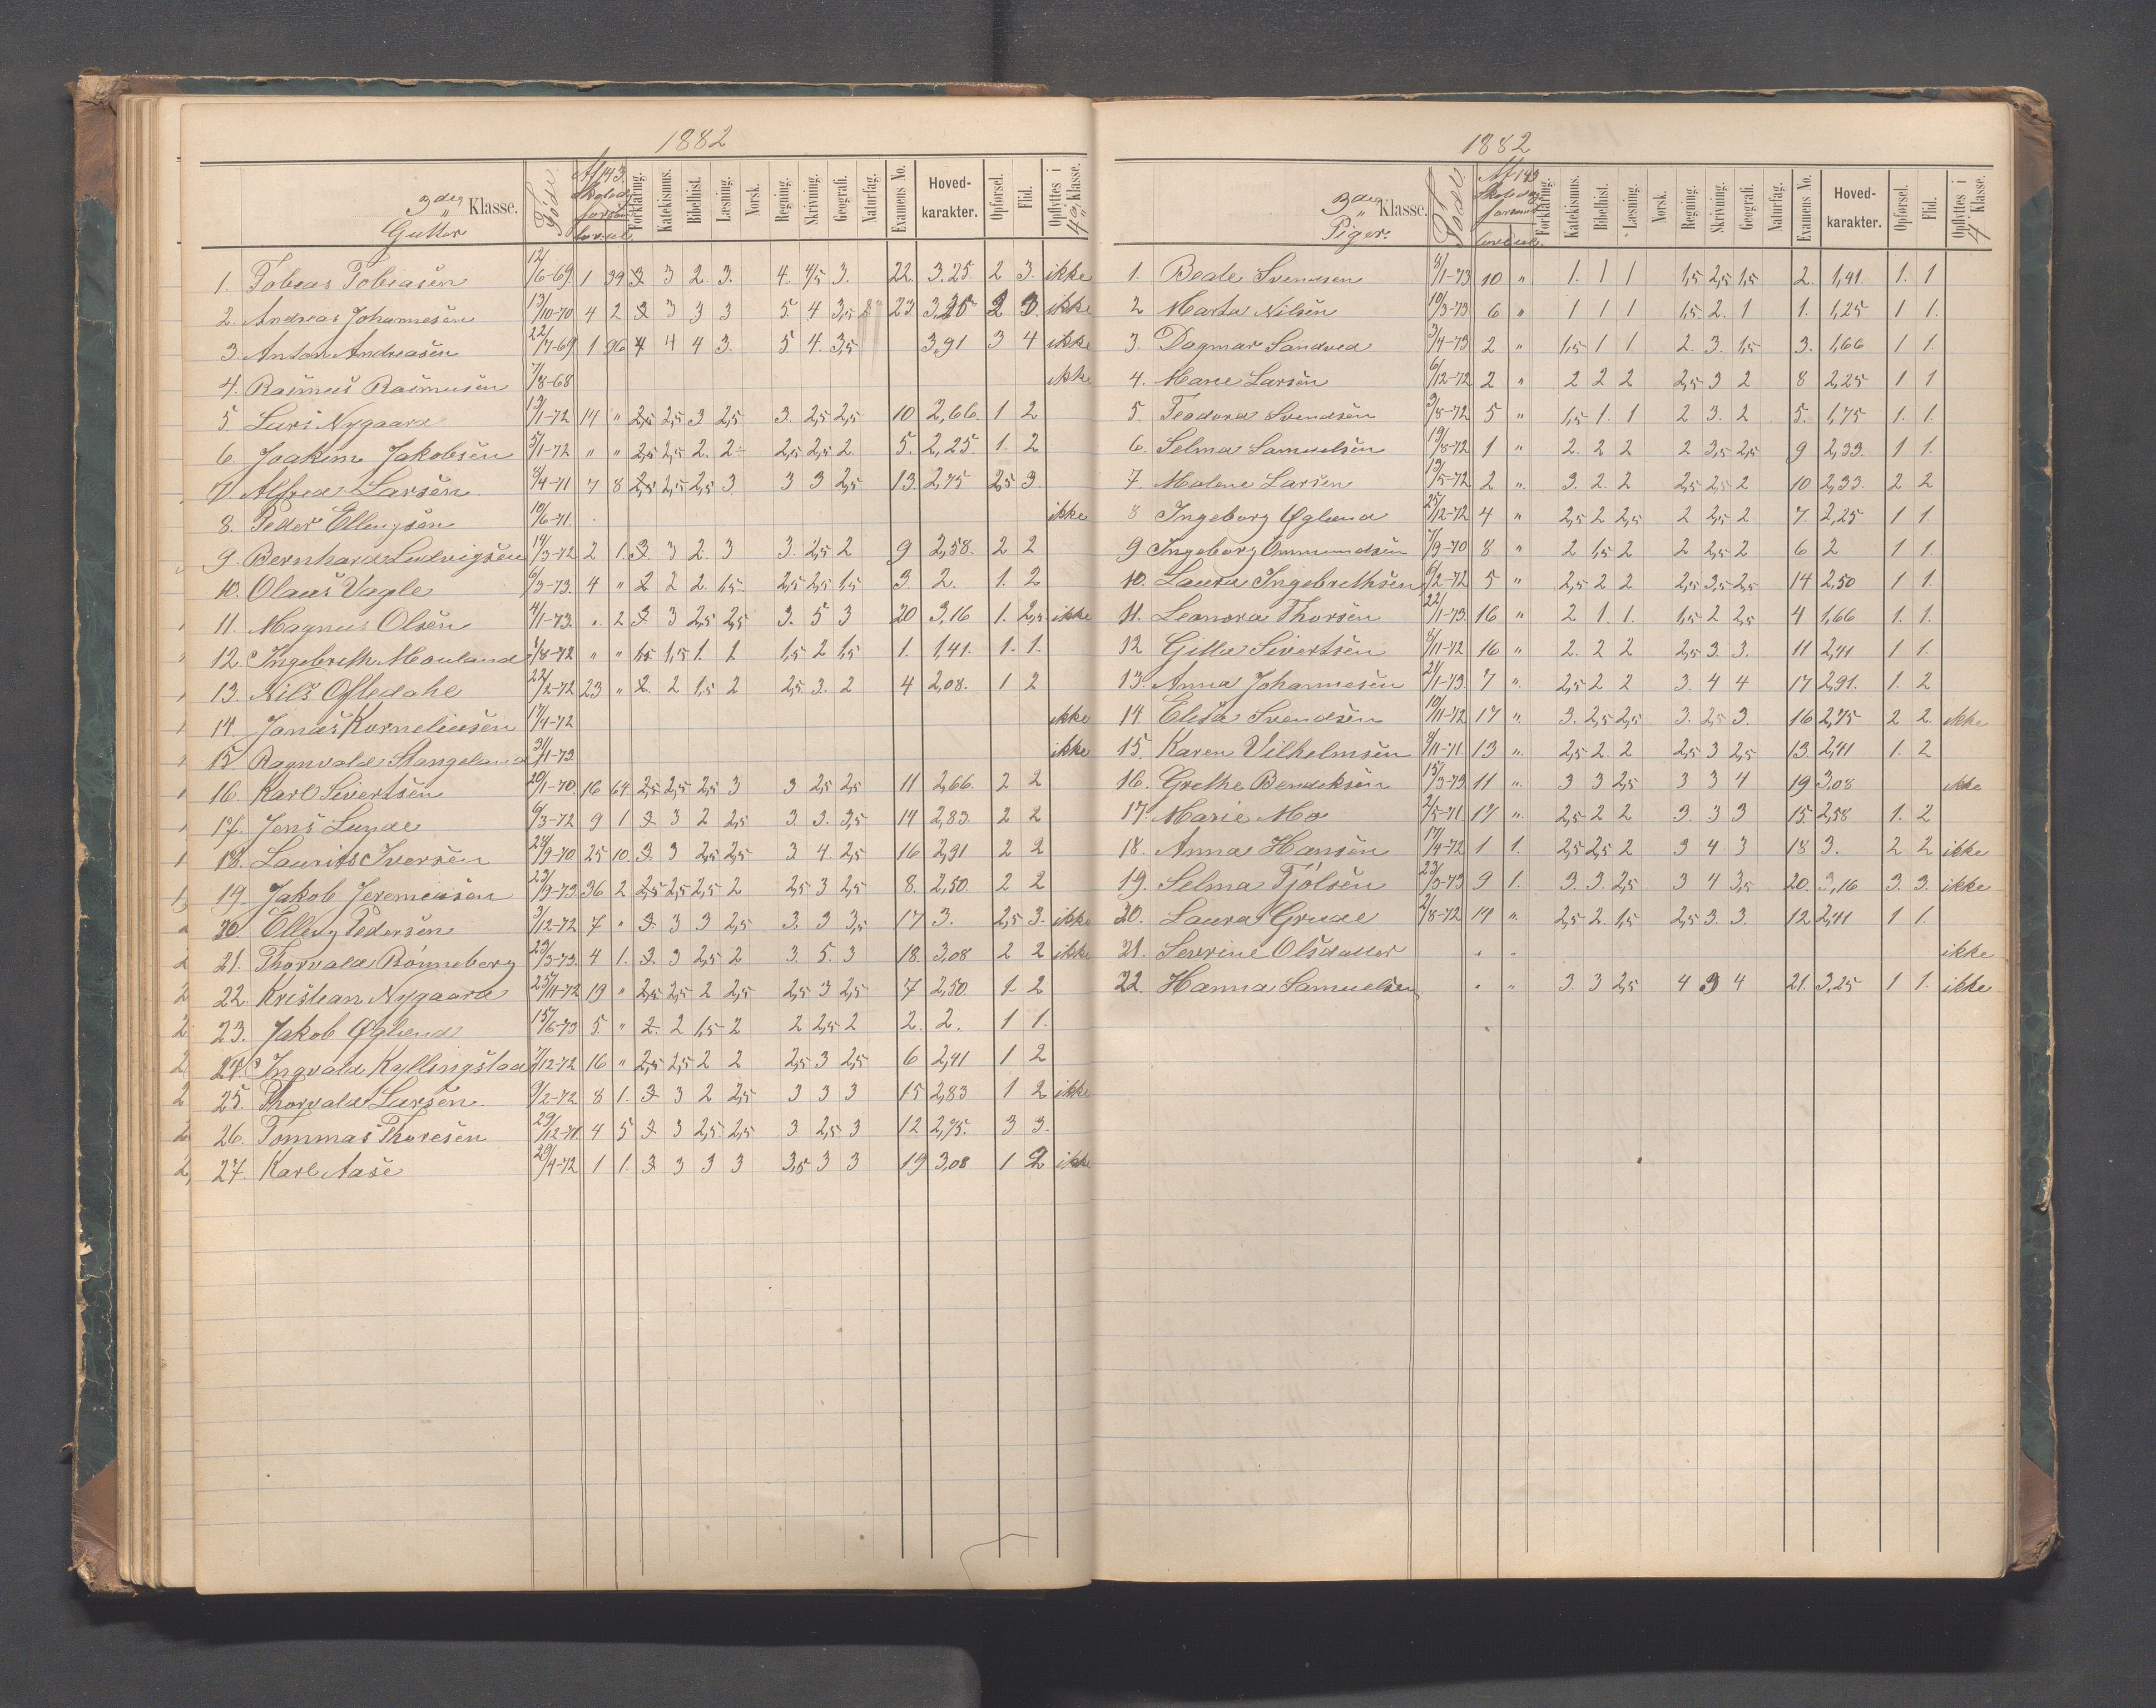 1882
3die Klasse. Gutter Født. Af 143 Skoledage forsømt lovl. ul. Forklaring. Katekismus. Bibelhist. Læsning. Norsk. Regning. Skrivning. Geografi. Naturfag. Examens No. Hoved-karakter. Opførsel. Flid. Opflyttes i 4de Klasse.
1. Tobias Tobiasen 12/6-69 1 39 3 3 2. 3. 4. 4/5 3. 22. 3.25 2 3. ikke
2. Andreas Johannesen 13/10-70 4 2 3 3 3 3 5. 4 3,5 23 3,25 2 3. ikke
3. Anton Andreasen 22/7-69 1 96 4 4 4 3. 5 4. 3,5 3,91 3 4 ikke
4. Rasmus Rasmusen 7/8-68 ikke
5. Lars Nygaard 13/1-72 14 " 2,5 2,5 3 2,5 3. 2,5 2,5 10 2,66. 1 2
6. Joakim Jakobsen 5/1-72 " " 2,5 2,5 2. 2 2,5 2,5 2. 5. 2,25. 1. 2
7. Alfred Larsen 8/4-71 7 8 2,5 2,5 2,5 3 3 3 2,5 13. 2,75 2,5 3.
8. Peder Ellingsen 10/6-71. ikke
9. Bernhard Ludvigsen 14/3-72 2 1. 3 3 2. 3 3. 2,5 2 9 2,58. 2 2
10. Olaus Vagle 6/3-73. 4 " 2 2 2. 1,5 2,5 2,5 1,5 3. 2. 1. 2
11. Magnus Olsen 4/1-73. " 2 3 3 2,5 2,5 3. 5 3 20 3,16 1. 2,5 ikke
12. Ingebreth Mauland 1/8-72 " " 1,5 1,5 1. 1 1,5 2 1,5 1. 1,41. 1. 1.
13. Nils Oftedahl 22/2-72 23 " 2. 2 1,5 2 2,5. 3. 2 4 2,08. 1 2
14 Jonas Korneliusen 17/4-72 ikke
15 Ragnvald Stangeland 31/1-73. ikke
16. Karl Sivertsen 20/1-70. 16 64 2,5 2,5 2,5 3 3 2,5 2,5 11 2,66. 2 2
17. Jens Lunde 6/3-72 9 1 3 3 2 2,5 3. 3. 3,5 14 2,83. 2 2
18. Laurits Iversen 28/9-70 25 10. 3 3 2,5 2,5 3 4. 2,5 16 2,91 2 2
19. Jakob Jeremiasen 23/9-73 36 2 2,5 2,5 2,5 2 2,5 3 2,5 8. 2,50. 2 2
20. Elling Pedersen 3/12-72 7 " 3 3 3 2,5 3. 3 3,5 17 3. 2,5 3. ikke
21. Thorvald Rønneberg 23/3-73. 4 1. 3 3 2,5 2 3. 5. 3 18. 3,08 2 2 ikke
22. Kristian Nygaard 25/11-72 19 " 2,5 2,5 2 2,5 2,5 3 2,5 7 2,50. 1. 2
23. Jakob Øglænd 15/6-73 5. " 2. 2 1,5 2 2 2,5 2 2. 2. 1 1.
24. Ingvald Kyllingstad 7/12-72 16 " 2,5 2,5 2 2 2,5 3 2,5 6 2,41 1 2
25. Thorvald Larsen. 9/2-72 8 1. 3 3 2 2,5 3 3 3 15 2,83 1 2 ikke
26. Tommas Thoresen 29/12-71 4 5 3 3 2,5 2,5 3 2,5 3 12 2,75. 3 3.
27. Karl Aase 20/4-72 1 1. 3 3 3 3 3,5 3 3 19 3,08 1 2 ikke
1882
3die Klasse. Piger. Født. Af 143 Skoledage forsømt lovl. ul. Forklaring. Katekismus. Bibelhist. Læsning. Norsk. Regning. Skrivning. Geografi. Naturfag. Examens No. Hoved-karakter. Opførsel. Flid. Opflyttes i 4 Klasse.
1. Beate Svendsen 8/1-73 10 " 1. 1 1 1,5 2,5 1,5 2. 1,41. 1. 1
2 Marta Nilsen 10/3-73 6 " 1 1 1 1,5. 2. 1 1. 1,25 1 1.
3. Dagmar Sandved 3/4-73 2 " 1,5 1 1. 2. 3. 1,5 3. 1,66 1 1.
4. Marie Larsen 6/12-72 2 " 2 2 2 2,5 3 2 8 2,25 1 1
5. Teodora Svendsen 3/8-72 5 " 1,5 1. 1 2 3. 2 5. 1,75 1. 1.
6. Selma Samuelsen 19/8-72 1 " 2. 2 2 2 3,5 2,5 9 2,33. 1 1.
7. Malene Larsen 13/5-72 2 " 3. 2. 2 2,5 2,5 2 10 2,33. 2 2
8 Ingeborg Øglænd 25/12-72 4 " 2,5 2 2,5 2 2,5 2 7. 2,25 1 1.
9 Ingeborg Ommundsen 7/9-70 8 " 2 1,5 2 2 2,5 2 6 2 1 1.
10. Laura Ingebrethsen 6/2-72 5 " 2,5 2 2 2,5 3,5 2,5 14 2,50 1 1.
11. Leonora Thorsen 22/1-73. 16 " 2 1 1. 1,5 2 2,5 4 1,66 1. 1.
12 Gitta Sivertsen 8/11-72 16 " 2. 2 2 2,5 3. 3. 11 2,41 1 1.
13. Anna Johannesen 21/1-73 7 " 2,5 2 2 3. 4 4 17 2,91. 1. 2
14. Elisa Svendsen 10/11-72 17 " 3. 2,5 2,5 3. 2,5 3. 16 2,75 2 2. ikke
15. Karen Vilhelmsen 8/11-71 13 " 2,5 2. 2 2,5 3 2,5 13. 2,41 1. 2
16. Grethe Bendiksen 15/3-73 11 " 3 3 2,5 3 3 4 19 3,08 ikke
17. Marie Mo 2/5-71 17 " 2,5 2 2 3 3 3 15. 2,58 1. 2
18. Anna Hansen 17/4-72 1 1. 2,5 2,5 2 3 4 3 18 3. 2 2 ikke
19. Selma Tjølsen 23/3-73 9 1. 3. 3. 2,5 3 4 3,5 20. 3,16 3. 3. ikke
20. Laura Grude 2/8-72 14 " 2,5 2. 1,5 2,5 3. 3. 12 2,41 1 1.
21. Severine Olsdatter " " ikke
22. Hanna Samuelsen " " 3. 3 2,5 4 3 4 21. 3,25 1 1. ikke